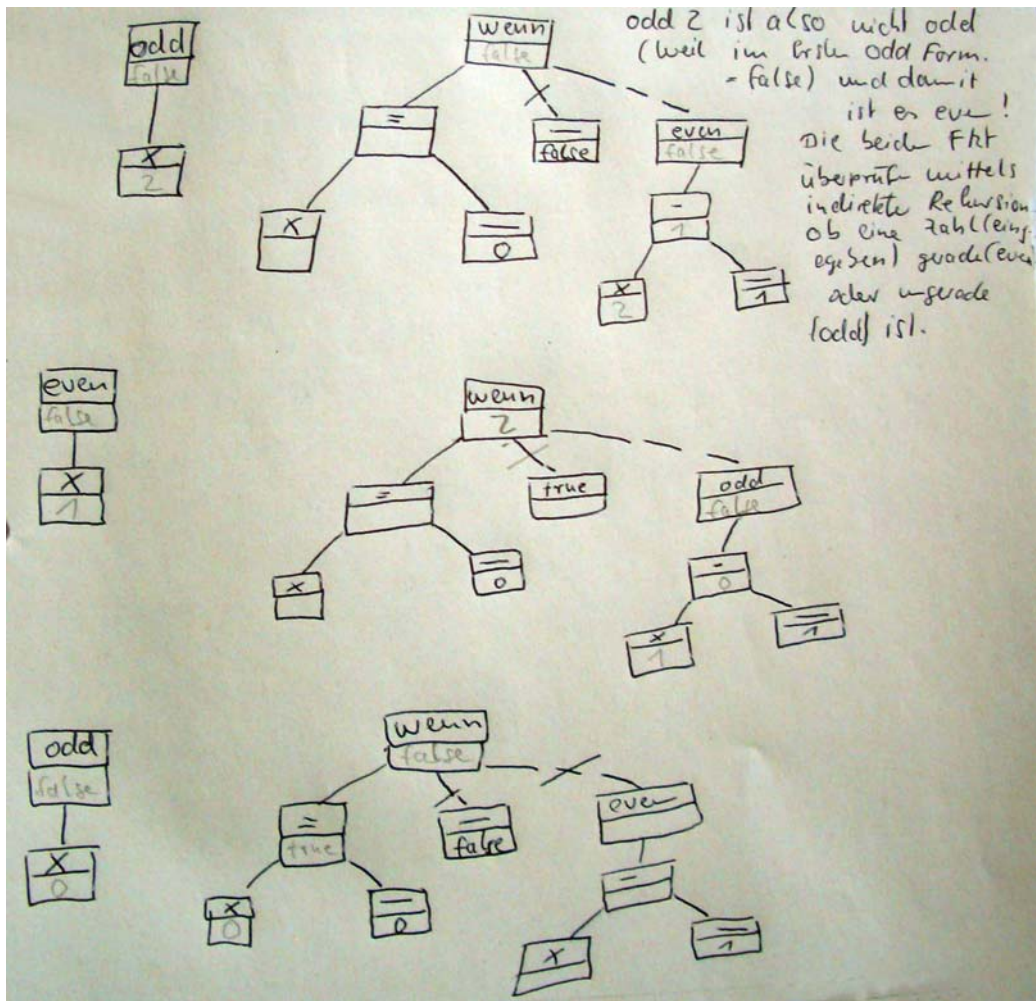 odd
false
x
2
wenn
false
=
x
0
false
even
false
-
1
x
2
1
odd 2 ist also nicht odd
(weil im ersten odd Form.
= false) und damit
ist es even!
Die beiden Fkt
überprüfen mittels
indirekte Rekursion
ob eine Zahl (eing
egeben) gerade (even
oder ungerade
(odd) ist.
even
false
x
1
wenn
2
=
x
0
true
odd
false
-
0
x
1
1
odd
false
x
0
wenn
false
=
true
x
0
0
false
even
-
x
1